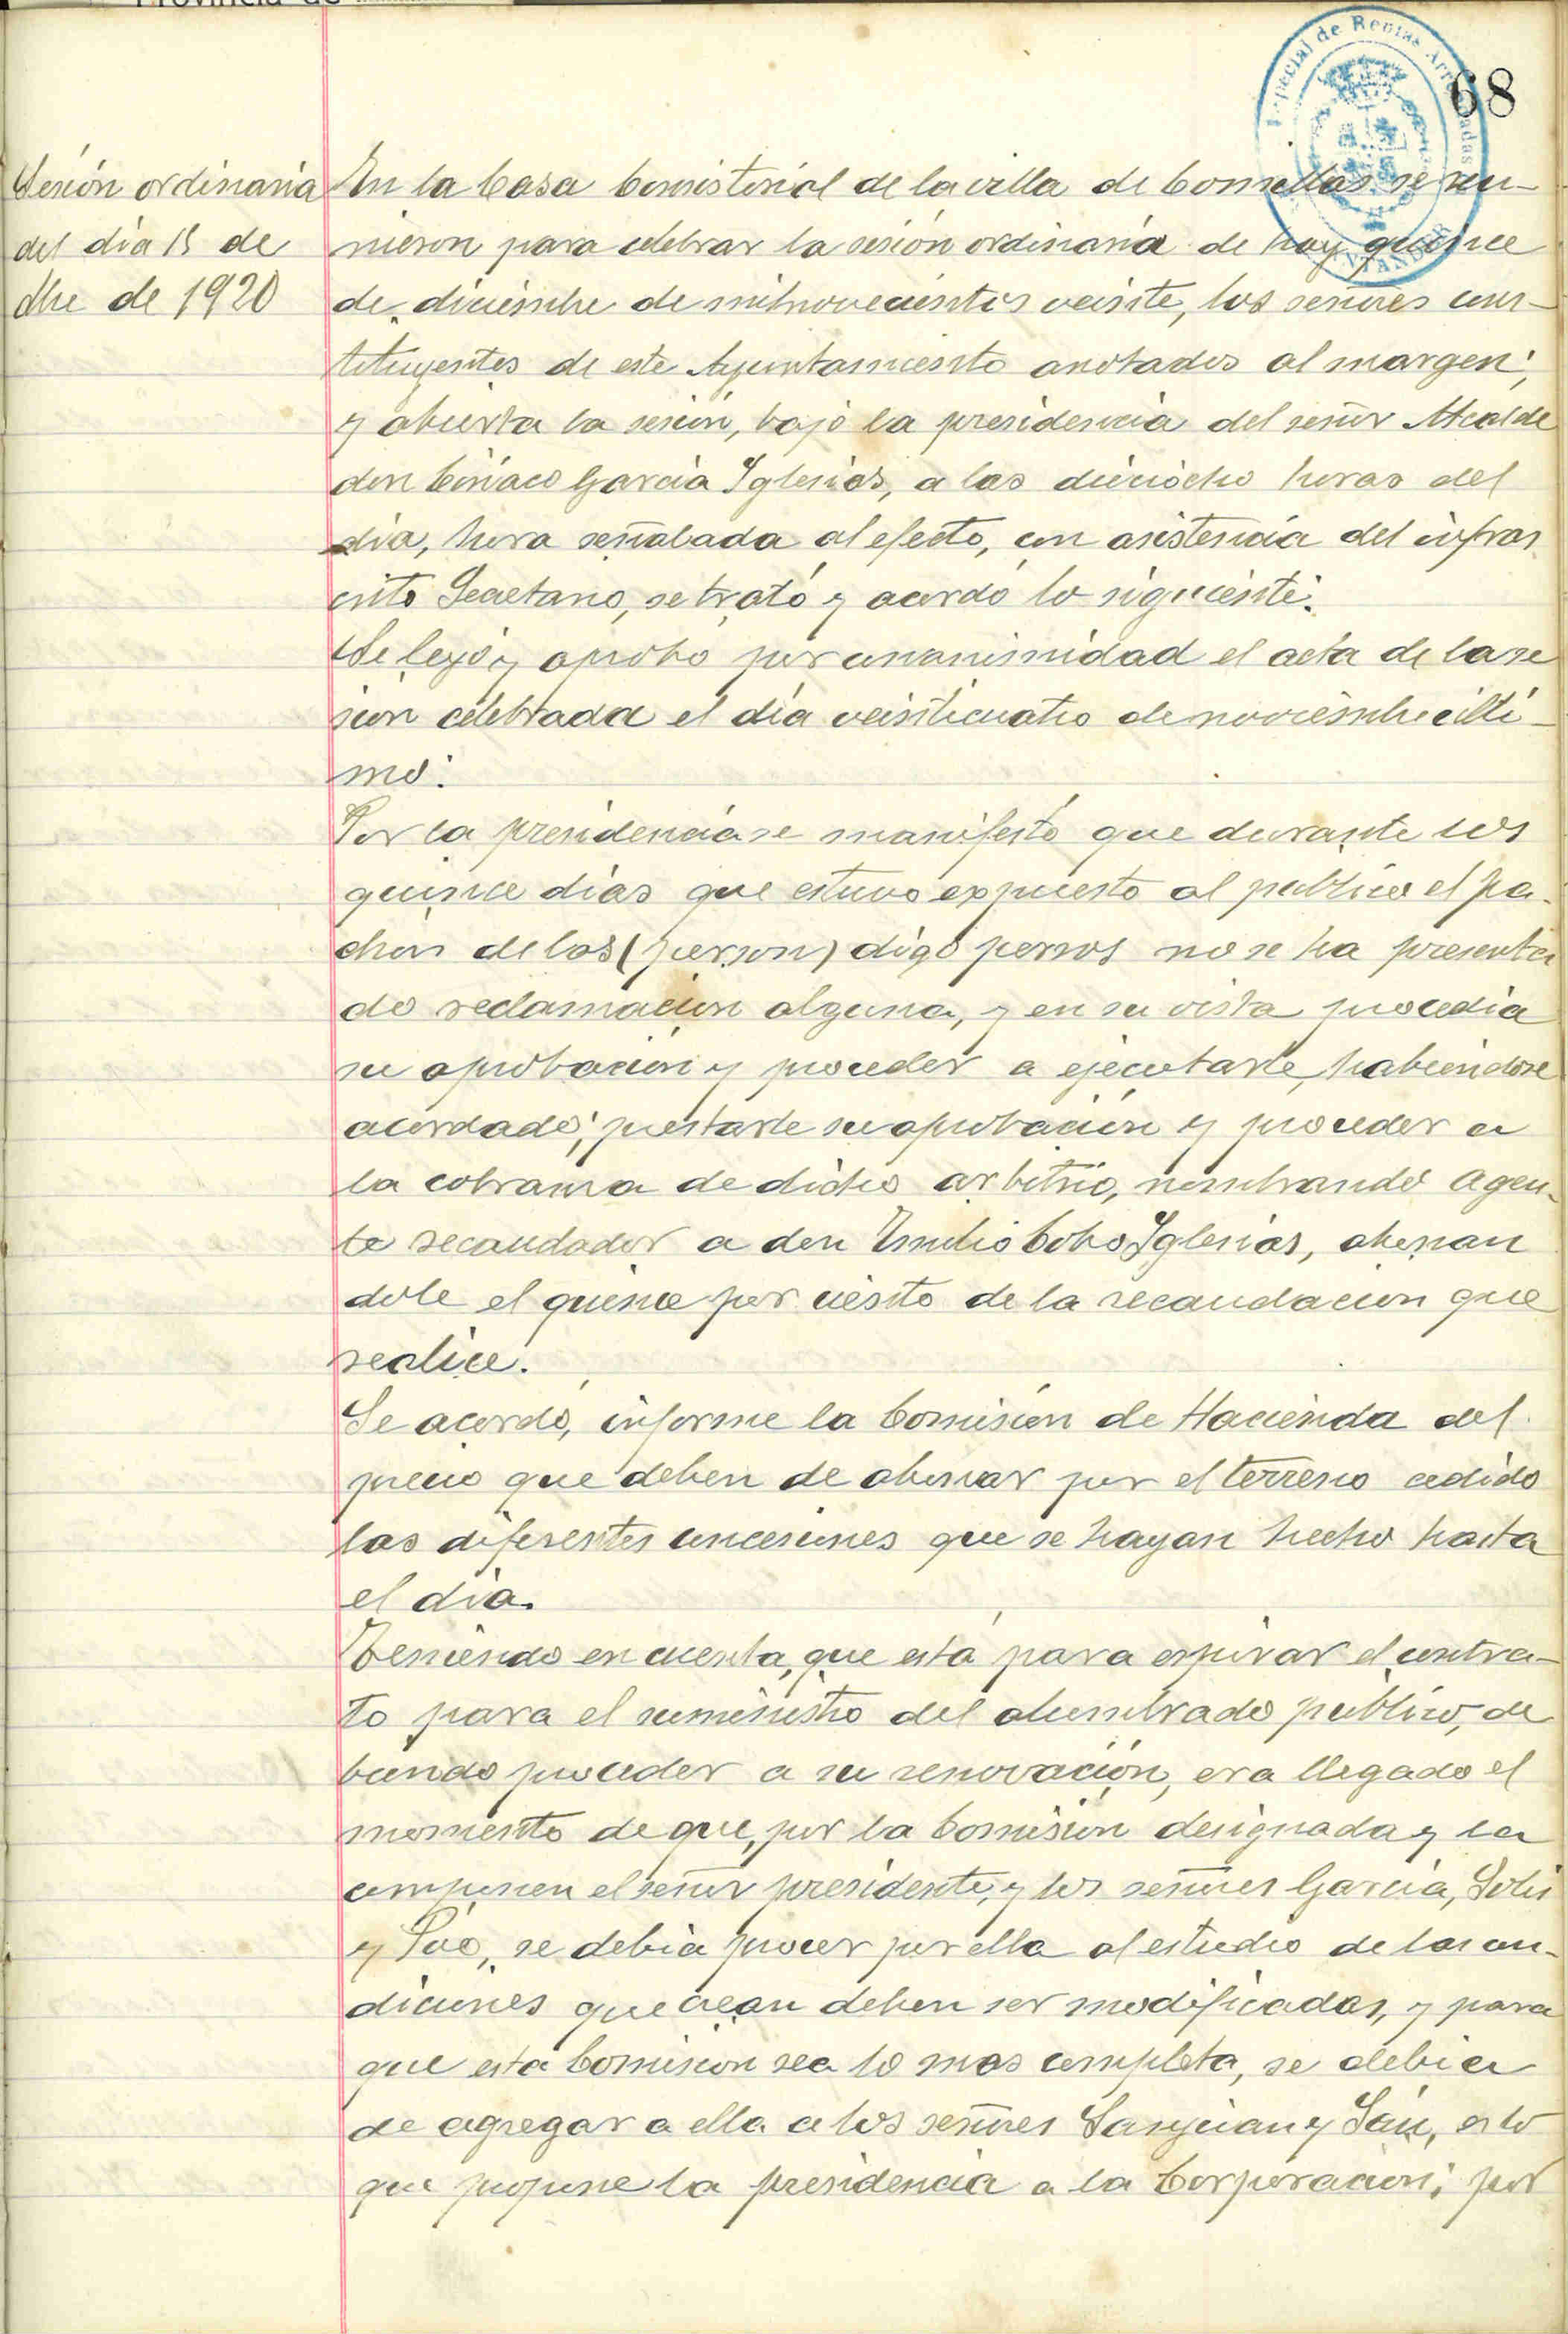 Provincia de
Especial de Rentas Arrendadas
SANTANDER
68
Sesión ordinaria
del día 15 de
dbre de 1920
En la Casa Consistorial de la villa de Comillas se reu-
nieron para celebrar la sesión ordinaria de hoy quince
de diciembre de mil novecientos veinte, los señores cons-
tituyentes de este Ayuntamiento anotados al margen;
y abierta la sesión, bajo la presidencia del señor Alcalde
don Ciriaco García Iglesias, a las dieciocho horas del
día, hora señalada al efecto, con asistencia del infras
crito Secretario, se trató y acordó lo siguiente:
Se leyó y aprobó por unanimidad el acta de la se
sion celebrada el día veinticuatro de noviembre últi-
mo.
Por la presidencia se manifestó que durante los
quince días que estuvo expuesto al publico el pa-
dron de los (person) digo perros no se ha presenta
do reclamacion alguna, y en su vista procedía
su aprobación y proceder a ejecutarle, habiendose
acordado; prestarle su aprobación y proceder a
la cobranza de dicho arbitrio, nombrando agen-
te recaudador a don Emilio Cobo Iglesias, abonan
dole el quince por ciento de la recaudacion que
realice.
Se acordó, informe la Comisión de Hacienda del
precio que deben de abonar por el terreno cedido
las diferentes concesiones que se hayan hecho hasta
el día.
Teniendo en cuenta, que está para espirar el contra-
to para el suministro del alumbrado publico, de
biendo proceder a su renovación, era llegado el
momento de que, por la Comisión designada y la
componen el señor presidente, y los señores García, Solis
y Poo, se debía procer por ella al estudio de las con-
diciones que crean deben ser modificadas, y para
que esta Comision sea lo mas completa, se debía
de agregar a ella a los señores Sanjuan y Sáiz, es lo
que propone la presidencia a la Corporacion; por